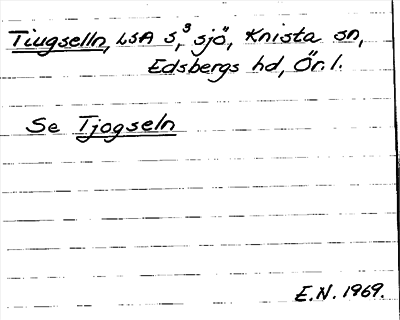 Tiugselln, LSA S,³ sjö, Knista sn,
Edsbergs hd, Ör.l.
Se Tjogseln
E.N. 1969.